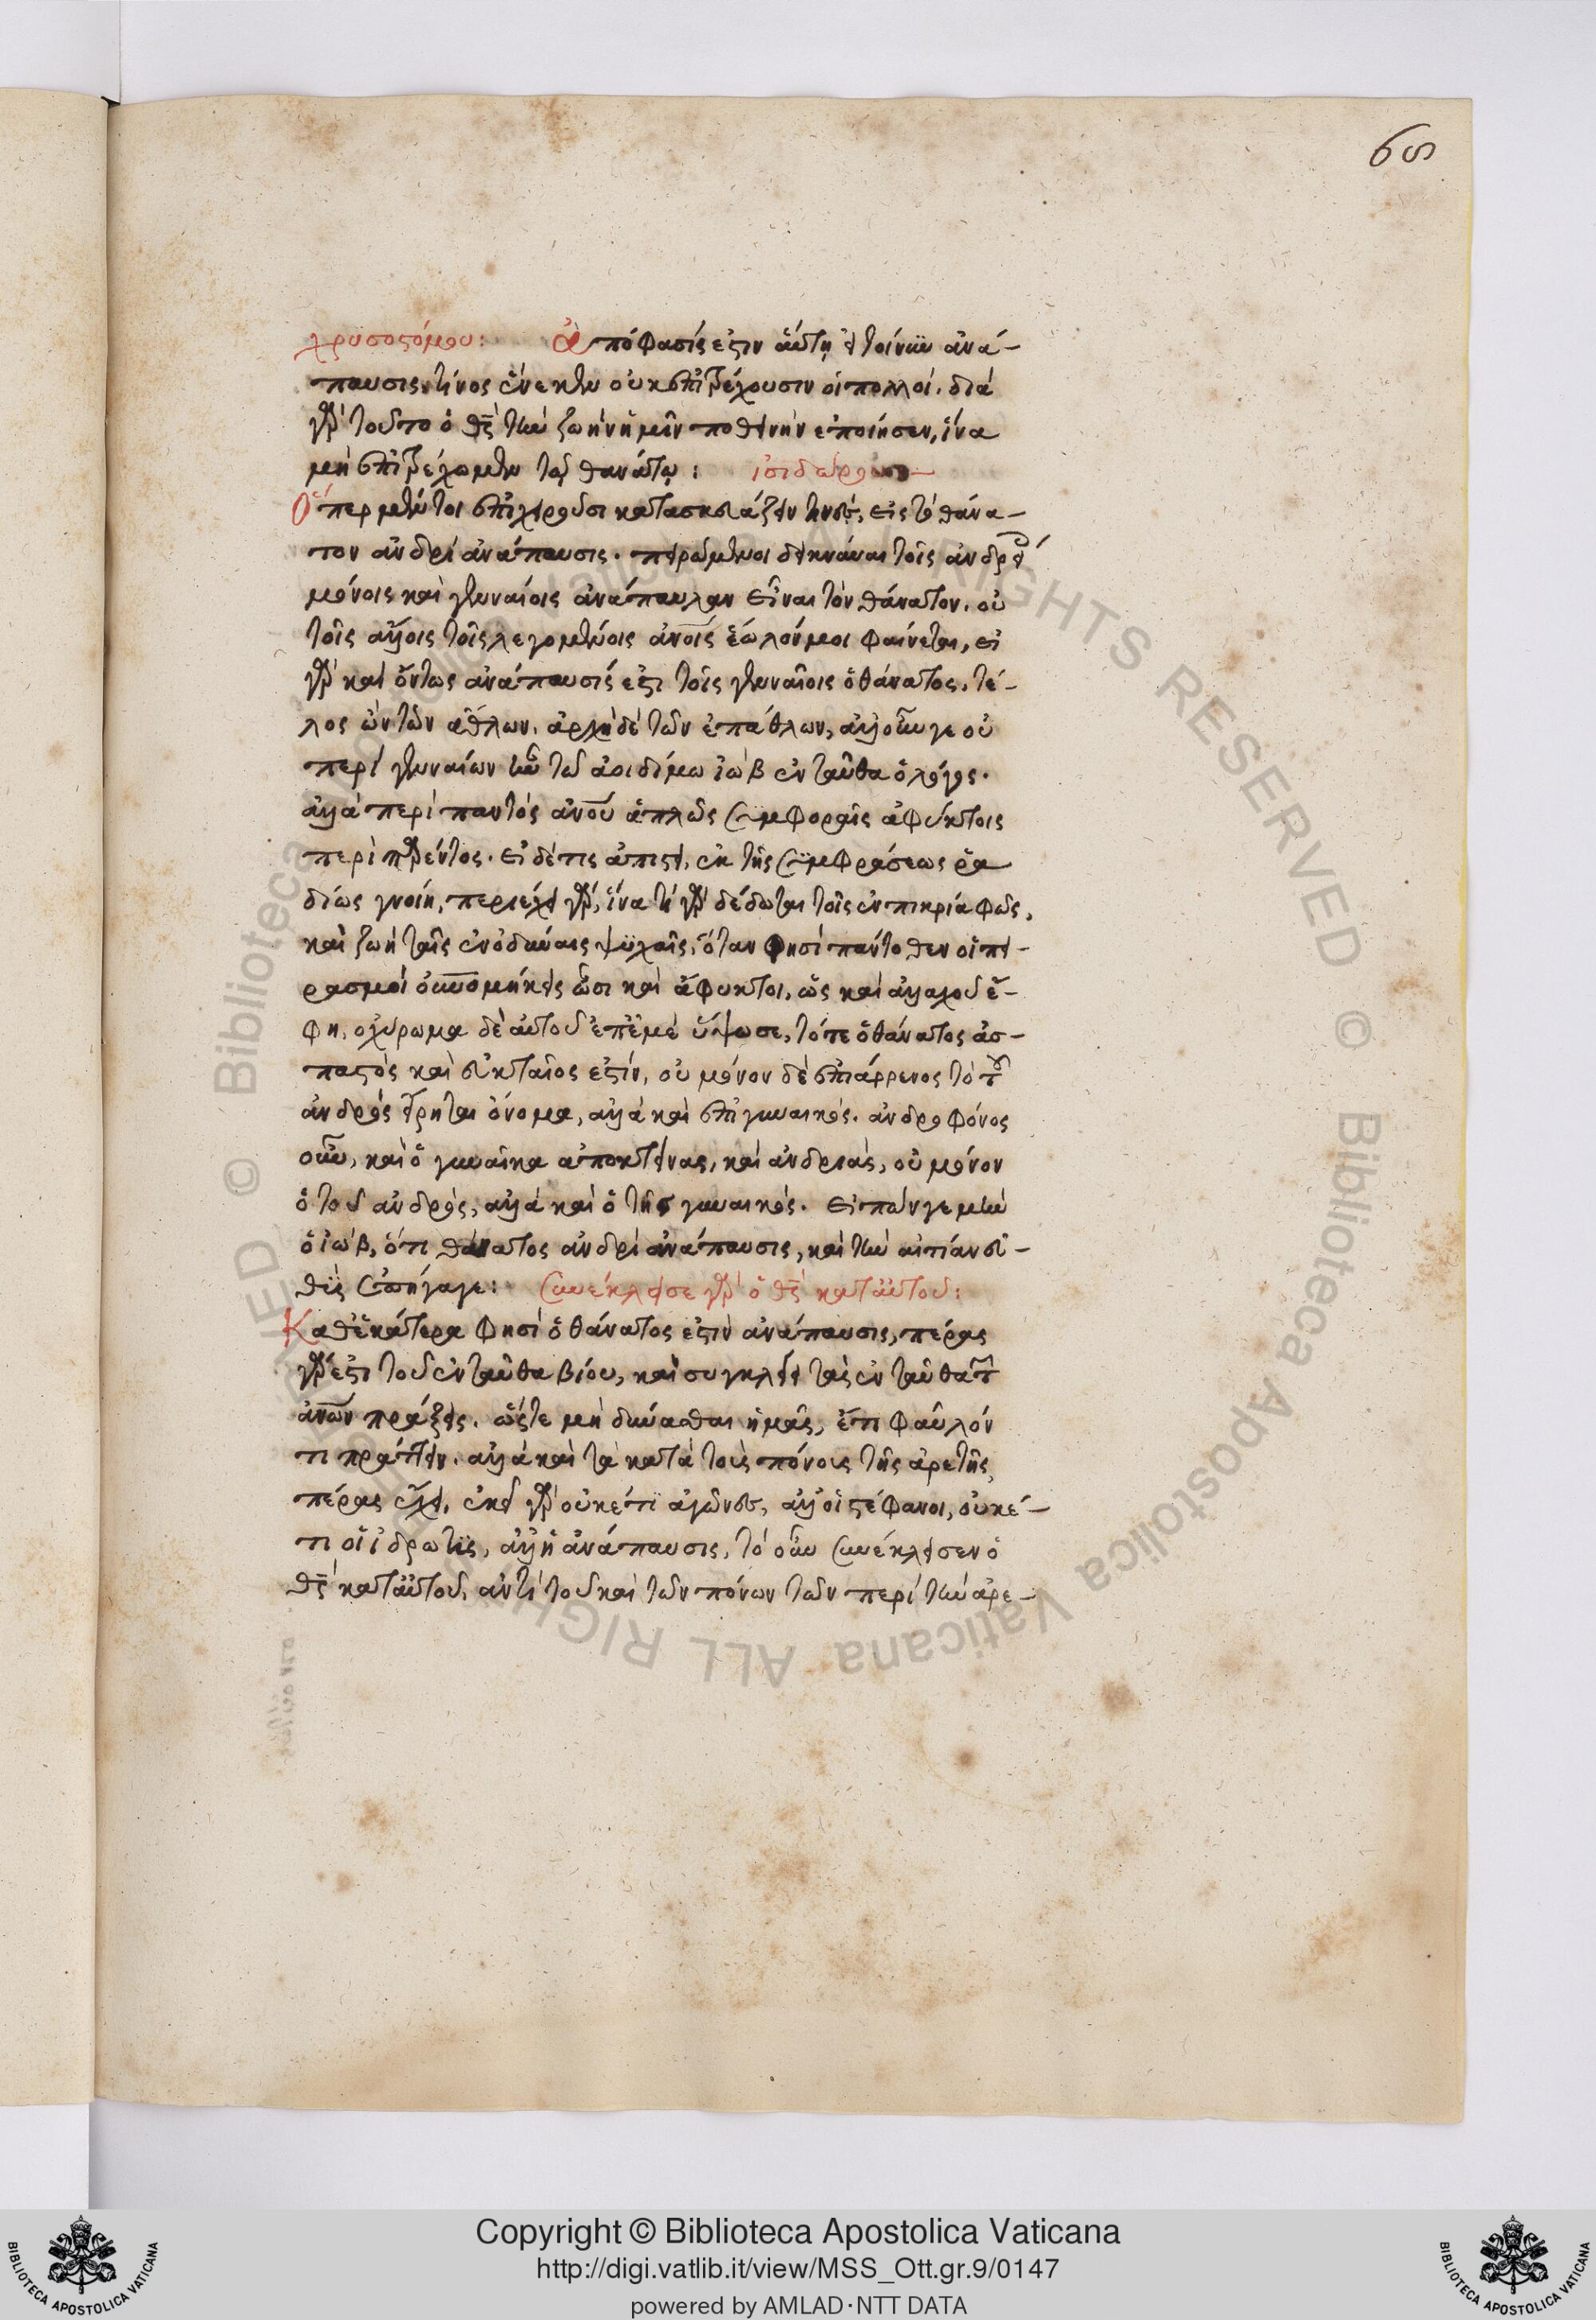 68
χρυσοστόμου: ἀπόφασίς ἐστιν αὕτη εἰ τοίνυν ἀνά-
παυσις. τίνος ἕνεκεν οὐκ ἐπιτρέχουσιν οἱ πολλοί. διὰ
γὰρ τοῦτο ὁ θς τὴν ζωὴν ἡμῖν ποθεινὴν ἐποίησεν, ἵνα
μὴ ἐπιτρέχωμεν τῷ θανάτῳ: ἰσιδώρου
Ὅπερ μέντοι ἐπιχειροῦσι κατασκευάζειν τινὲς, εἰς τὸ θάνα-
τον ἀνδρὶ ἀνάπαυσις. πειρώμενοι δεικνύναι τοῖς ἀνδρεί
μόνοις καὶ γενναίοις ἀνάπαυλαν εἶναι τὸν θάνατον. οὐ
τοῖς ἄλλοις τοῖς λεγομένοις ἀνοις ἑωλόν μοι φαίνεται, εἰ
γὰρ καὶ ὄντως ἀνάπαυσίς ἐστι τοῖς γενναίοις ὁ θάνατος. τέ-
λος ὢν τῶν ἄθλων. ἀρχὴ δὲ τῶν ἐπάθλων, ἀλλ' οὖν γε οὐ
περὶ γενναίων ἦν τῶ ἀοιδίμω ἰὼβ ἐνταῦθα ὁ λόγος.
ἀλλὰ περὶ παντὸς ἀνου ἁπλῶς συμφοραῖς ἀφύκτοις
περιπεσόντος. εἰ δέ τις ἀπιστεῖ, ἐκ τῆς συμφράσεως ῥα
δίως γνοίη, περιέχει γὰρ, ἵνα τί γὰρ δέδοται τοῖς ἐν πικρία φῶς,
καὶ ζωὴ ταῖς ἐν ὀδύναις ψυχαῖς, ὅταν φησὶ πάντοθεν οἱ πει-
ρασμοὶ ὦσι καὶ ἄφυκτοι, ὡς καὶ ἀλλαχοῦ ἔ-
φη. ὀχύρωμα δὲ αὐτοῦ ἐπ' ἐμὲ ὕψωσε, τότε ὁ θάνατος ἀσ-
παστὸς καὶ εὐκταῖος ἐστίν, οὐ μόνον δὲ ἐπὶ ἄρρενος τὸ τοῦ
ἀνδρὸς εἴρηται ὄνομα, ἀλλὰ καὶ ἐπὶ γυναικός. ἀνδροφόνος
οὖν, καὶ ὁ γυναῖκα ἀποκτείνας, καὶ ἀνδριὰς, οὐ μόνον
ὁ τοῦ ἀνδρὸς, ἀλλὰ καὶ ὁ τῆς γυναικός. εἰπών γε μὴν
ὁ ἰὼβ, ὅτι θάνατος ἀνδρὶ ἀνάπαυσις, καὶ τὴν αἰτίαν εὐ-
θὺς ἐπήγαγε: Συνέκλεισε γὰρ ὁ θς κατ' αὐτοῦ:
Καθ' ἑκάτερα φησὶ ὁ θάνατος ἐστὶν ἀνάπαυσις, πέρας
γὰρ ἐστι τοῦ ἐνταῦθα βίου, καὶ συγκλείει τὰς ἐνταῦθα τῶν
ἀνων πράξεις. ὥστε μὴ δύνασθαι ἡμᾶς, ἔτι φαῦλόν
τι πράττειν. ἀλλὰ καὶ τὰ κατὰ τοὺς πόνους τῆς ἀρετῆς
πέρας ἔχει, ἐκεῖ γὰρ οὐκέτι ἀγῶνες, ἀλλ' οἱ στέφανοι, οὐκέ-
τι οἱ ἱδρῶτες, ἀλλ' ἡ ἀνάπαυσις, τὸ οὖν συνέκλεισεν ὁ
θς κατ' αὐτοῦ, ἀντὶ τοῦ καὶ τῶν πόνων τῶν περὶ τὴν ἀρε-
Copyright © Biblioteca Apostolica Vaticana
http://digi.vatlib.it/view/MSS_Ott.gr.9/0147
powered by AMLAD·NTT DATA
BIBLIOTECA APOSTOLICA VATICANA
BIBLIOTECA APOSTOLICA VATICANA